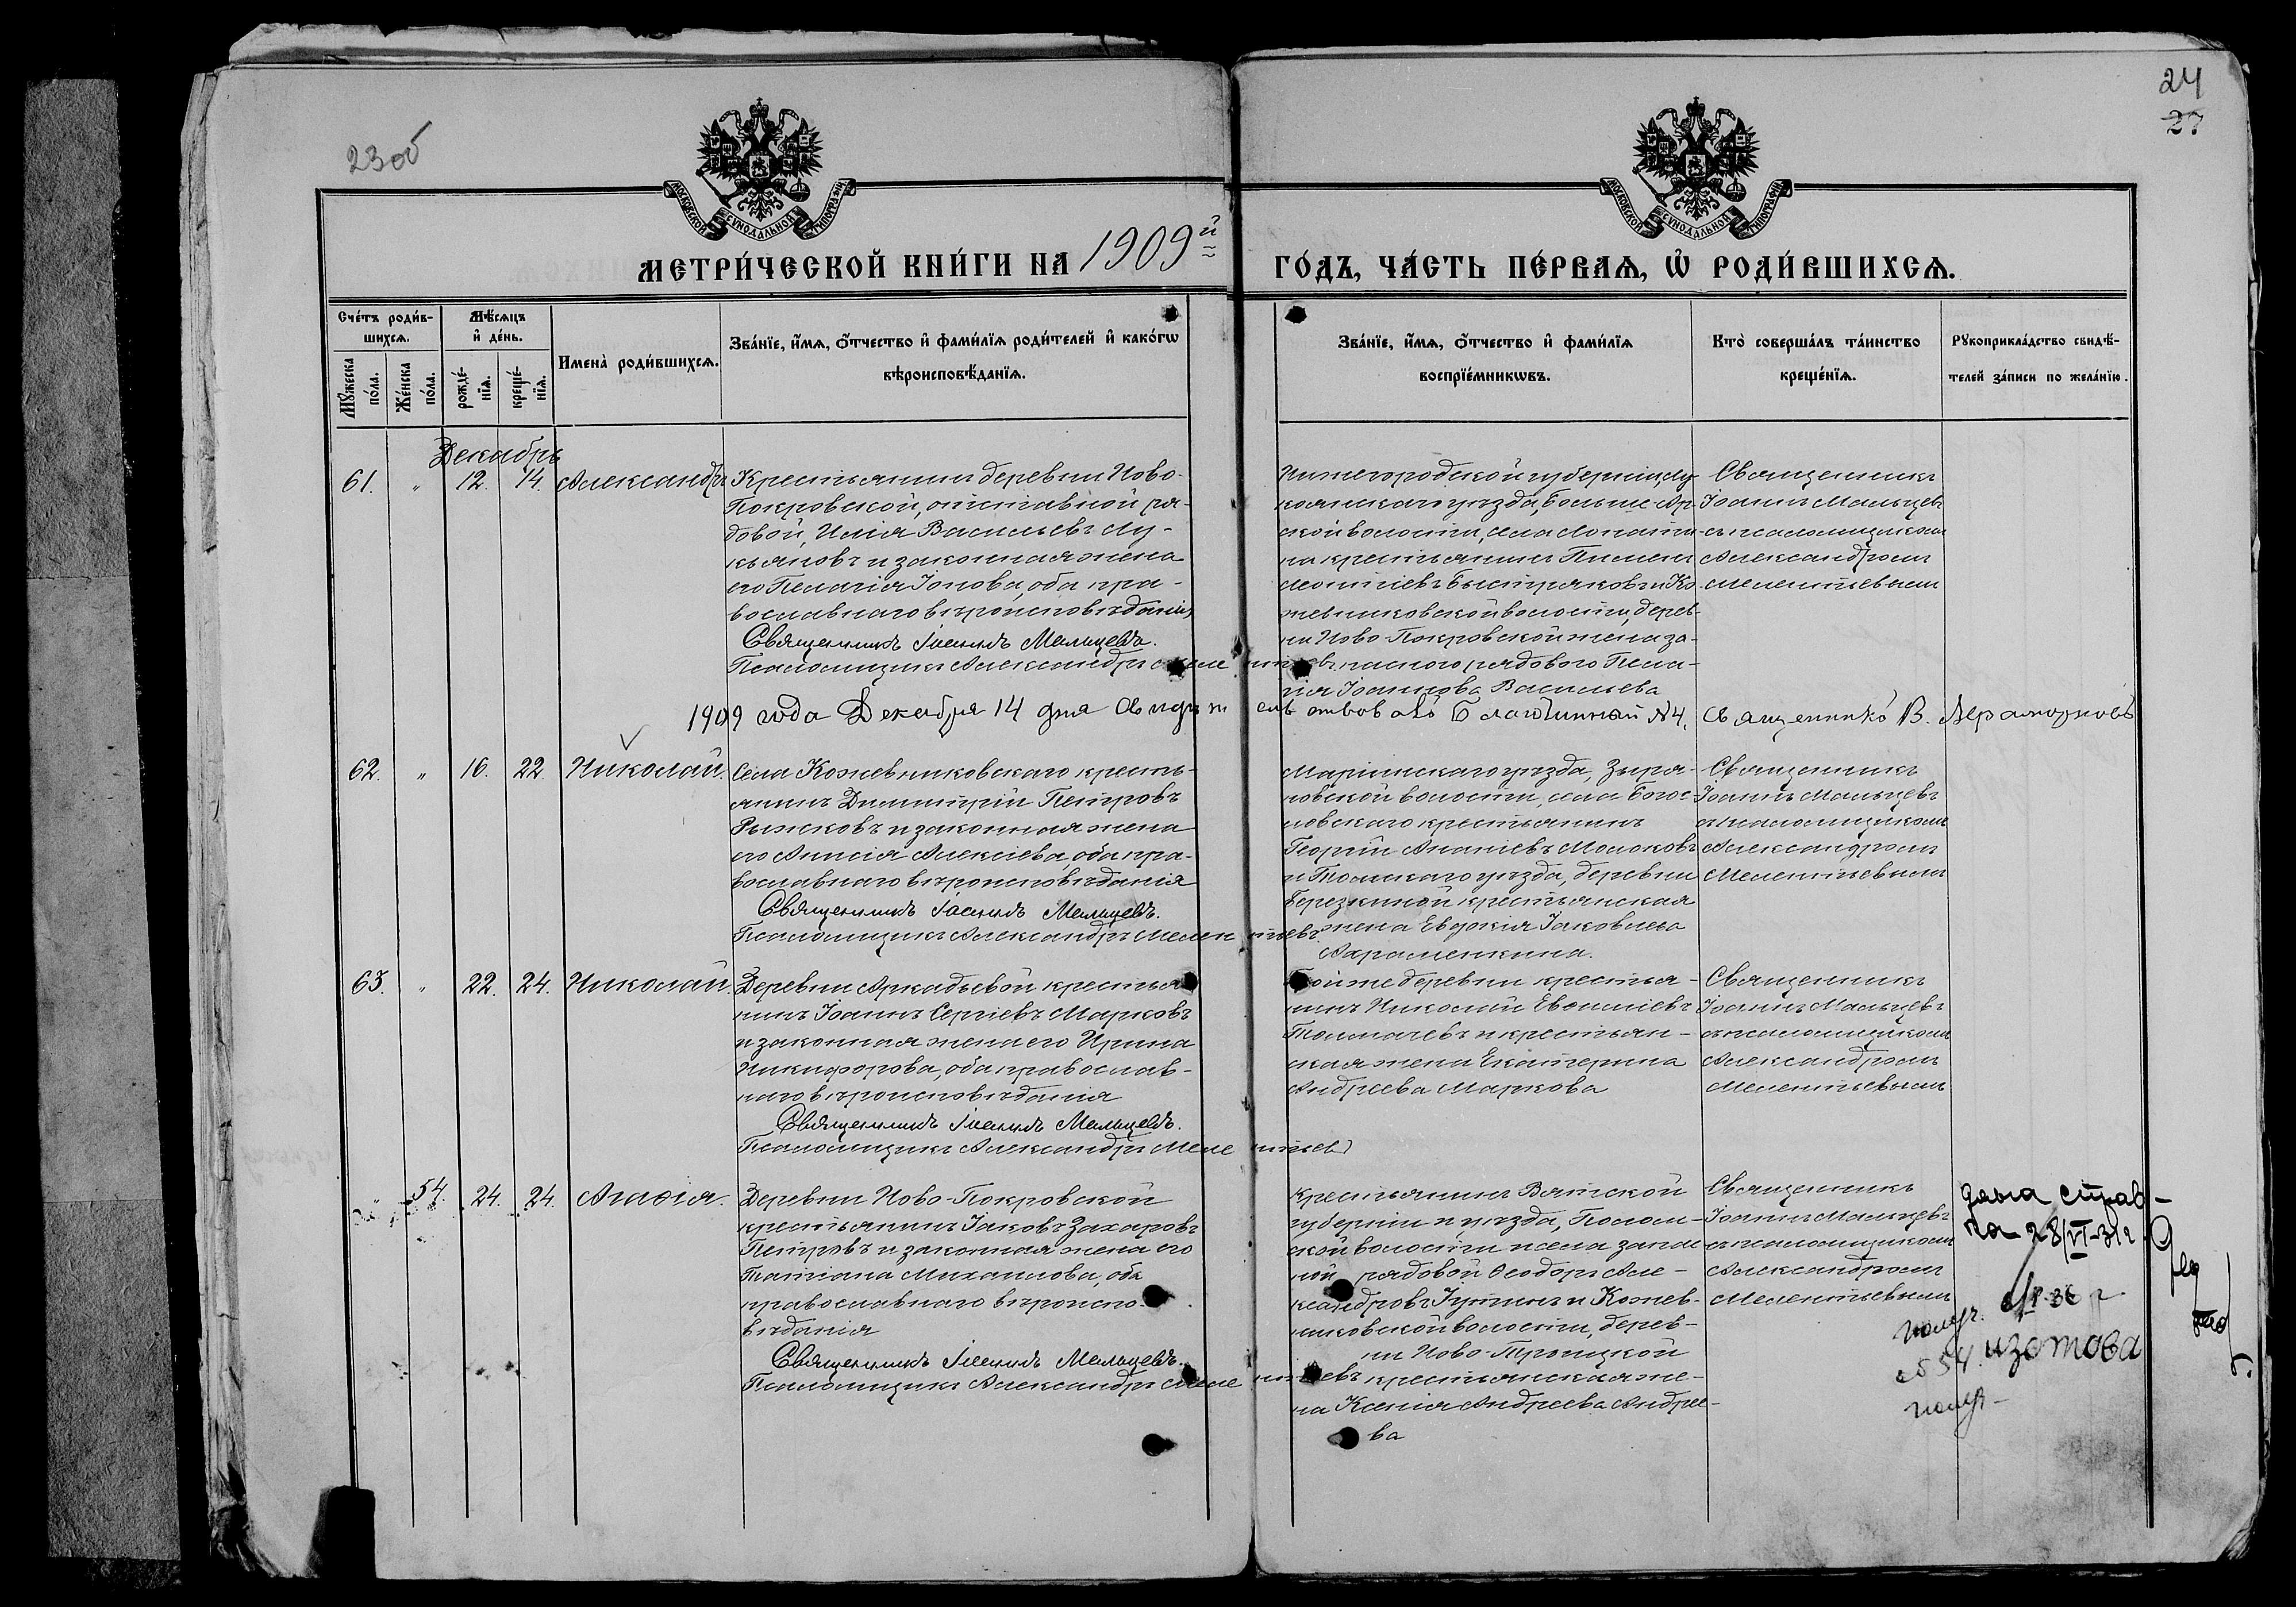 23об
24
27
МОСКОВСКОЙ СУНОДАЛЬНОЙ ТИПОГРАФІИ
МОСКОВСКОЙ СУНОДАЛЬНОЙ ТИПОГРАФІИ
МЕТРИ́ЧЕСКОЙ КНИ́ГИ НА 1909й
ГО́ДЪ, ЧА́СТЬ ПЕ́РВАѦ, Ѡ РОДИ́ВШИХСѦ.
Сче́тъ роди́в-
шихсѧ.
Мꙋжеска по́ла.
Же́нска по́ла.
Мѣ́сѧцъ
и҆ де́нь.
рожде́-
нїѧ.
креще́-
нїѧ.
Имена̀ роди́вшихсѧ.
Зва́нїе, и҆́мѧ, ѻ҆́тчество и҆ фами́лїѧ роди́телей и҆ како́гѡ
вѣроисповѣ́данїѧ.
Зва́нїе, и҆́мѧ, ѻ҆́тчество и҆ фами́лїѧ
воспрїе́мникѡвъ.
Кто̀ соверша́лъ та́инство
креще́нїѧ.
Рꙋкоприкла́дство свидѣ́-
телей за́писи по жела́нїю.
Декабрь
61. " 12. 14. Александръ
Крестьянин деревни Ново-
Покровской, отставной ря-
довой, Илія Васильевъ Лу-
кьяновъ и законная жена
его Пелагія Іонова, оба пра-
вославнаго вѣроисповѣданія
Священникъ Іоаннъ Мальцевъ.
Псаломщикъ Александръ Мелентьевъ
Нижегородской губерніи, Лу-
кояновскаго уѣзда, Больше-Ар-
ской волости, села Лопати-
на крестьянинъ Пимен
Леонтіевъ Быстряковъ и Ко-
жевниковской волости, дерев-
ни Ново-Покровской жена за-
паснаго рядового Пела-
гія Іоаннова Васильева
Священникъ
Іоаннъ Мальцевъ
съ псаломщикомъ
Александромъ
Мелентьевымъ
1909 года Декабря 14 дня Свидѣтельствовалъ Благочинный №4, Священникъ В.
62. " 16. 22. Николай.
Села Кожевниковскаго кресть-
янинъ Димитрій Петровъ
Рыжковъ и законная жена
его Анисія Алексіева, оба пра-
вославнаго вѣроисповѣданія
Священникъ Іоаннъ Мальцевъ.
Псаломщикъ Александръ Мелентьевъ
Маріинскаго уѣзда, Зыря-
новской волости, села Богос-
ловскаго крестьянинъ
Георгій Ананіевъ Молоковъ
и Томскаго уѣзда, деревни
Березкиной крестьянская
жена Евдокія Іаковлева
Харламенкина.
Священникъ
Іоаннъ Мальцевъ
съ псаломщикомъ
Александромъ
Мелентьевымъ
63. " 22. 24. Николай.
Деревни Аркадьевой крестья-
нинъ Іоаннъ Сергіевъ Марковъ
и законная жена его Ирина
Никифорова, оба православ-
наго вѣроисповѣданія
Священникъ Іоаннъ Мальцевъ.
Псаломщикъ Александръ Мелентьевъ
Той же деревни крестья-
нинъ Николай Евсигніевъ
Толмачевъ и крестьян-
ская жена Екатерина
Андреева Маркова
Священникъ
Іоаннъ Мальцевъ
съ псаломщикомъ
Александромъ
Мелентьевымъ
" 54. 24. 24. Агаѳія.
Деревни Ново-Покровской
крестьянинъ Іаковъ Захаровъ
Петровъ и законная жена его
Татіана Михаилова, оба
православнаго вѣроиспо-
вѣданія
Священникъ Іоаннъ Мальцевъ.
Псаломщикъ Александръ Мелентьевъ
крестьянинъ Вятской
губерніи и уѣзда, Полом-
ской волости и села запас-
ной рядовой Ѳеодоръ Але-
ксандровъ и Кожев-
никовской волости, дерев-
ни Ново-Троицкой
крестьянская же-
на Ксенія Андреева Андрее-
ва
Священникъ
Іоаннъ Мальцевъ
съ псаломщикомъ
Александромъ
Мелентьевымъ
дана справ-
ка 28/VI-31г.
получ.
об 54. изотова